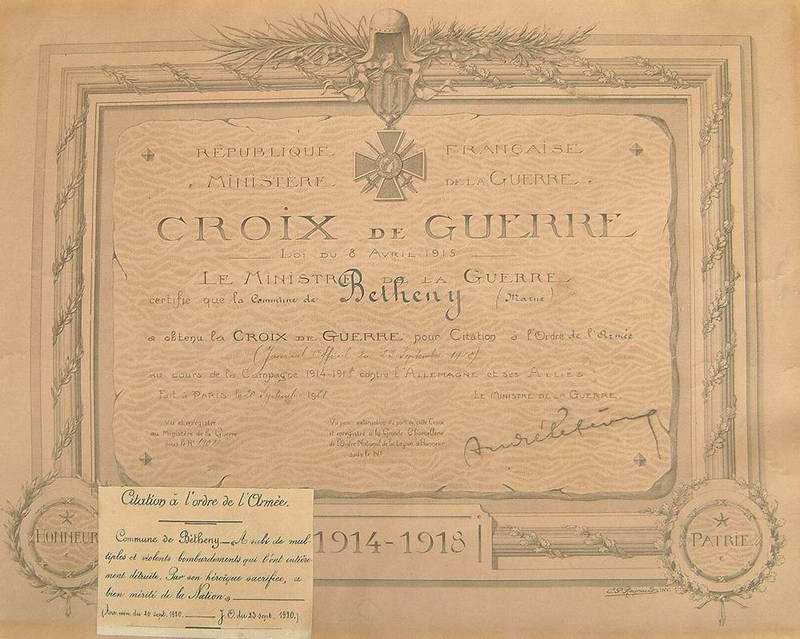 RÉPUBLIQUE FRANÇAISE
MINISTERE DE LA GUERRE
CROIX DE GUERRE
LOI DU 8 AVRIL 1915
LE MINISTRE DE LA GUERRE
certifie que la Commune de Betheny (Marne)
a obtenu la CROIX DE GUERRE pour Citation à l'Ordre de l'Armée
(Journal Officiel du Septembre
au cours de la Campagne 1914-191 contre l'ALLEMAGNE et ses ALLIÉS
Fait à PARIS le Septembre LE MINISTRE DE LA GUERRE.
Vu et enregistré
au Ministère de la Guerre
sous le N°
Vu pour autorisation du port de cette Croix
et enregistré à la Grande Chancellerie
de l'Ordre National de la Légion d'Honneur
sous le N°
André Lefèvre
HONNEUR
1914-1918
PATRIE
Citation à l'ordre de l'Armée.
Commune de Bétheny. — A subi de mul-
tiples et violents bombardements qui l'ont entière-
ment détruite. Par son héroïque sacrifice, a
bien mérité de la Nation.
(Arr. min. du 20 sept. 1920. — J.O. du 23 sept. 1920.)